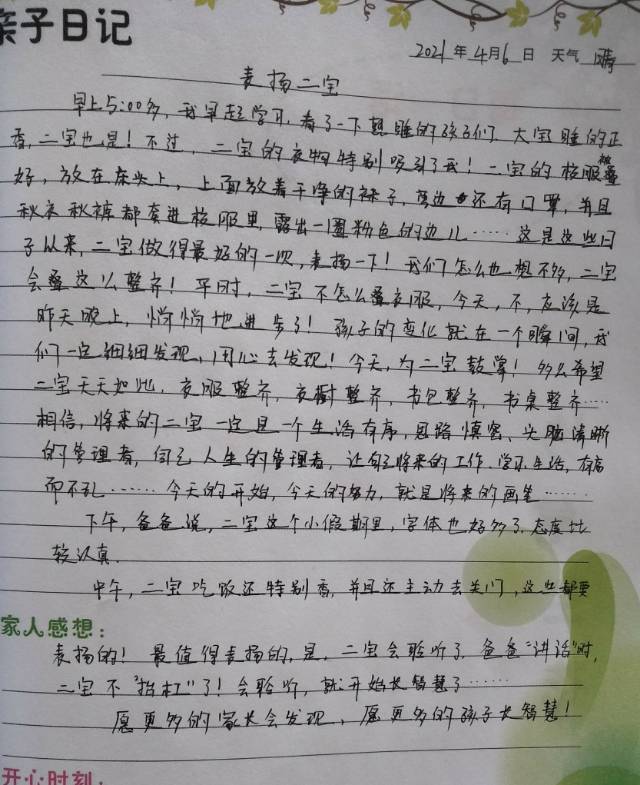 亲子日记
2021年4月6日 天气 晴
表扬二宝
早上5:00多，我早起学习，看了一下熟睡的孩子们，大宝睡的正
香，二宝也是！不过，二宝的衣物特别吸引了我！二宝的校服被叠
好，放在床头上，上面放着干净的袜子，旁边还有口罩，并且
秋衣秋裤都套进校服里，露出一圈粉色的边儿……这是这些日
子以来，二宝做得最好的一次，表扬一下！我们怎么也想不到，二宝
会叠这么整齐！平时，二宝不怎么叠衣服，今天，不，应该是
昨天晚上，悄悄地进步了！孩子的变化就在一个瞬间，我
们一定细细发现，用心去发现！今天，为二宝鼓掌！多么希望
二宝天天如此，衣服整齐，衣橱整齐，书包整齐，书桌整齐……
相信，将来的二宝一定是一个生活有序，思路慎密、头脑清晰
的管理者，自己人生的管理者，让自己将来的工作、学习、生活，有序
而不乱……今天的开始，今天的努力，就是将来的画笔……
下午，爸爸说，二宝这个小假期里，字体也好多了，态度比
较认真．
中午，二宝吃饭还特别香，并且还主动去关门，这些都要
家人感想：
表扬的！最值得表扬的，是，二宝会聆听了，爸爸“讲话”时，
二宝不“抬杠”了！会聆听，就开始长智慧了……
愿更多的家长会发现，愿更多的孩子长智慧！
开心时刻：